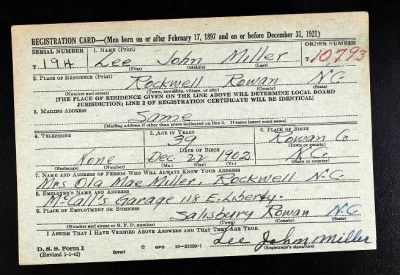 REGISTRATION CARD—(Men born on or after February 17, 1897 and on or before December 31, 1921)
SERIAL NUMBER 1. NAME (Print) ORDER NUMBER
T 194 Lee John Miller T10,793
(First) (Middle) (Last)
2. PLACE OF RESIDENCE (Print)
Rockwell Rowan N.C.
(Number and street) (Town, township, village, or city) (County) (State)
[THE PLACE OF RESIDENCE GIVEN ON THE LINE ABOVE WILL DETERMINE LOCAL BOARD
JURISDICTION; LINE 2 OF REGISTRATION CERTIFICATE WILL BE IDENTICAL]
3. MAILING ADDRESS
Same
[Mailing address if other than place indicated on line 2. If same insert word same]
4. TELEPHONE 5. AGE IN YEARS 6. PLACE OF BIRTH
39 Rowan Co
DATE OF BIRTH (Town or county)
None Dec 22 1902 N.C.
(Exchange) (Number) (Mo.) (Day) (Yr.) (State or country)
7. NAME AND ADDRESS OF PERSON WHO WILL ALWAYS KNOW YOUR ADDRESS
Mrs Ola Mae Miller, Rockwell N.C.
8. EMPLOYER'S NAME AND ADDRESS
McCall's Garage 118 E. Liberty.
9. PLACE OF EMPLOYMENT OR BUSINESS
Salisbury Rowan N.C.
(Number and street or R. F. D. number) (Town) (County) (State)
I AFFIRM THAT I HAVE VERIFIED ABOVE ANSWERS AND THAT THEY ARE TRUE.
Lee John Miller
D. S. S. Form 1
(Revised 1-1-42) (over) 16—21630-1 (Registrant's signature)